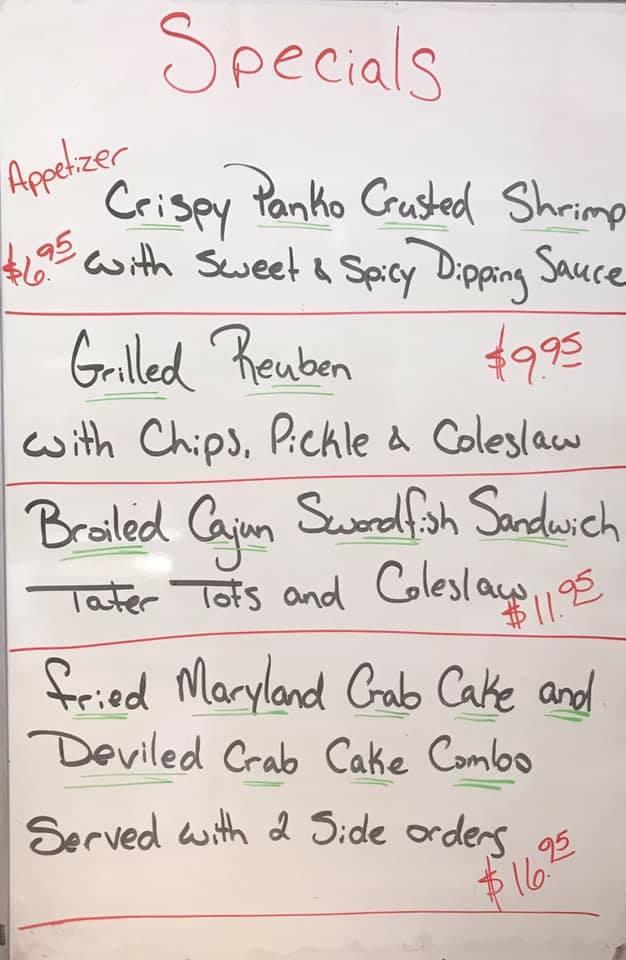 Specials
Appetizer
Crispy Panko Crusted Shrimp
$6.95 with Sweet & Spicy Dipping Sauce
Grilled Reuben $9.95
with Chips, Pickle & Coleslaw
Broiled Cajun Swordfish Sandwich
Tater Tots and Coleslaw $11.95
Fried Maryland Crab Cake and
Deviled Crab Cake Combo
Served with 2 Side orders
$16.95